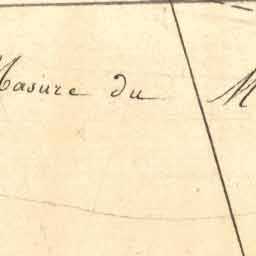 Masure du M